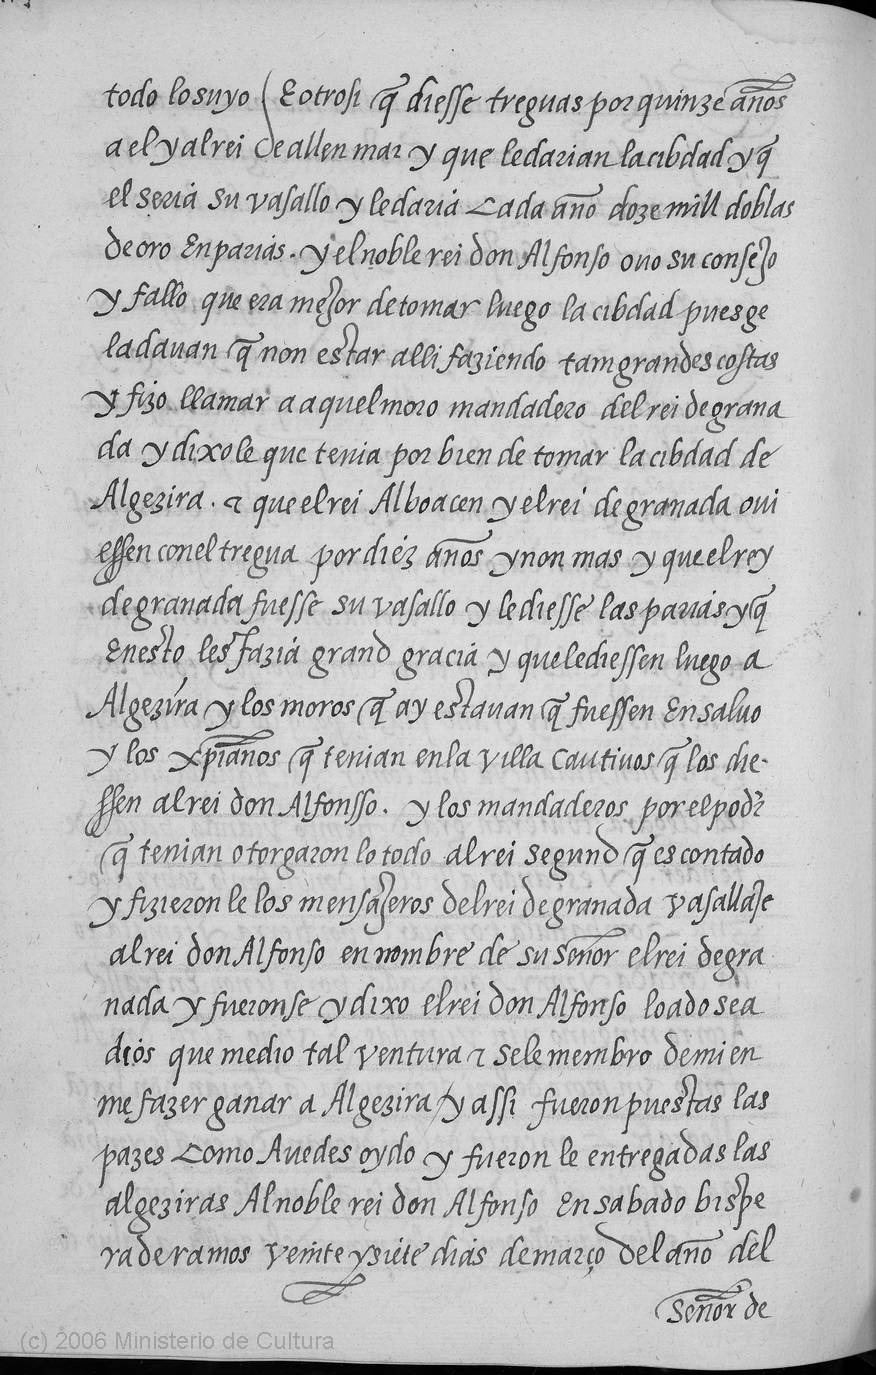 todo lo suyo / E otrosi q̃ diesse treguas por quinze años
a el y al rei de allen mar y que le darian la cibdad y q̃
el seria su vasallo y le daria cada año doze mill doblas
de oro En parias. y el noble rei don Alfonso ouo su consejo
y fallo que era mejor de tomar luego la cibdad pues ge
la dauan q̃ non estar alli faziendo tam grandes costas
y fizo llamar a aquel moro mandadero del rei de grana
da y dixole que tenia por bien de tomar la cibdad de
Algezira. & que el rei Alboacen y el rei de granada oui
essen con el tregua por diez años y non mas y que el rey
de granada fuesse su vasallo y le diesse las parias y q̃
En esto les fazia grand gracia y que le diessen luego a
Algezira y los moros q̃ ay estauan q̃ fuessen En saluo
y los xp̃ianos q̃ tenian en la villa cautiuos q̃ los die-
ssen al rei don Alfonsso. y los mandaderos por el podr̃
q̃ tenian otorgaron lo todo al rei segund q̃ es contado
y fizieron le los mensajeros del rei de granada vasallaje
al rei don Alfonso en nombre de su señor el rei de gra
nada y fueronse y dixo el rei don Alfonso loado sea
dios que me dio tal ventura & se le membro de mi en
me fazer ganar a Algezira / y assi fueron puestas las
pazes como Auedes oydo y fueron le entregadas las
algeziras Al noble rei don Alfonso En sabado bispe
ra de ramos veinte y siete dias de março del año del
Señor de
(c) 2006 Ministerio de Cultura